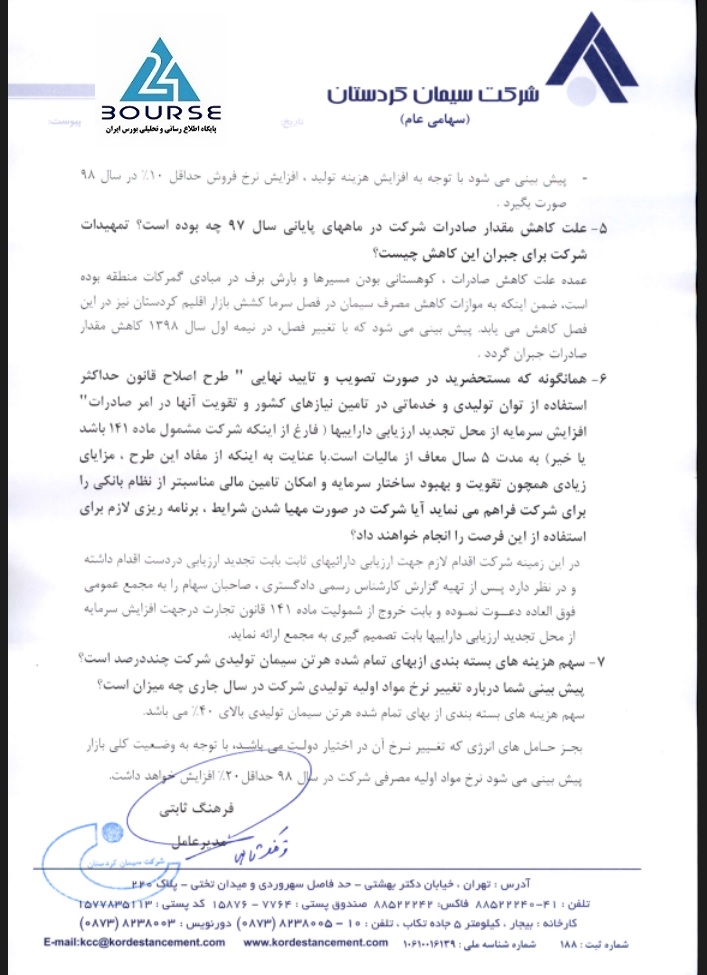 24
BOURSE
پایگاه اطلاع رسانی و تحلیلی بورس ایران
شرکت سیمان کردستان
(سهامی عام)
تاریخ:
پیوست:
- پیش بینی می شود با توجه به افزایش هزینه تولید ، افزایش نرخ فروش حداقل ۱۰٪ در سال ۹۸
صورت بگیرد .
۵- علت کاهش مقدار صادرات شرکت در ماههای پایانی سال ۹۷ چه بوده است؟ تمهیدات
شرکت برای جبران این کاهش چیست؟
عمده علت کاهش صادرات ، کوهستانی بودن مسیرها و بارش برف در مبادی گمرکات منطقه بوده
است، ضمن اینکه به موازات کاهش مصرف سیمان در فصل سرما کشش بازار اقلیم کردستان نیز در این
فصل کاهش می یابد. پیش بینی می شود که با تغییر فصل، در نیمه اول سال ۱۳۹۸ کاهش مقدار
صادرات جبران گردد .
۶- همانگونه که مستحضرید در صورت تصویب و تایید نهایی " طرح اصلاح قانون حداکثر
استفاده از توان تولیدی و خدماتی در تامین نیازهای کشور و تقویت آنها در امر صادرات"
افزایش سرمایه از محل تجدید ارزیابی داراییها ( فارغ از اینکه شرکت مشمول ماده ۱۴۱ باشد
یا خیر) به مدت ۵ سال معاف از مالیات است.با عنایت به اینکه از مفاد این طرح ، مزایای
زیادی همچون تقویت و بهبود ساختار سرمایه و امکان تامین مالی مناسبتر از نظام بانکی را
برای شرکت فراهم می نماید آیا شرکت در صورت مهیا شدن شرایط ، برنامه ریزی لازم برای
استفاده از این فرصت را انجام خواهند داد؟
در این زمینه شرکت اقدام لازم جهت ارزیابی دارائیهای ثابت بابت تجدید ارزیابی دردست اقدام داشته
و در نظر دارد پس از تهیه گزارش کارشناس رسمی دادگستری ، صاحبان سهام را به مجمع عمومی
فوق العاده دعوت نموده و بابت خروج از شمولیت ماده ۱۴۱ قانون تجارت درجهت افزایش سرمایه
از محل تجدید ارزیابی داراییها بابت تصمیم گیری به مجمع ارائه نماید.
۷- سهم هزینه های بسته بندی ازبهای تمام شده هرتن سیمان تولیدی شرکت چنددرصد است؟
پیش بینی شما درباره تغییر نرخ مواد اولیه تولیدی شرکت در سال جاری چه میزان است؟
سهم هزینه های بسته بندی از بهای تمام شده هرتن سیمان تولیدی بالای ۴۰٪ می باشد.
بجز حامل های انرژی که تغییر نرخ آن در اختیار دولت می باشد، با توجه به وضعیت کلی بازار
پیش بینی می شود نرخ مواد اولیه مصرفی شرکت در سال ۹۸ حداقل ۲۰٪ افزایش خواهد داشت.
فرهنگ ثابتی
مدیرعامل
شرکت سیمان کردستان
آدرس : تهران ، خیابان دکتر بهشتی – حد فاصل سهروردی و میدان تختی – پلاک ۲۲۰
تلفن : ۴۱-۸۸۵۲۲۲۴۰ فاکس: ۸۸۵۲۲۲۴۲ صندوق پستی : ۷۷۶۴ – ۱۵۸۷۶ کد پستی : ۱۵۷۷۸۳۵۱۱۳
کارخانه : بیجار ، کیلومتر ۵ جاده تکاب ، تلفن : ۱۰ – ۸۲۳۸۰۰۵ (۰۸۷۳) دورنویس : ۸۲۳۸۰۰۳ (۰۸۷۳)
شماره ثبت : ۱۸۸ شماره شناسه ملی : ۱۰۶۱۰۰۱۶۱۳۹ www.kordestancement.com E-mail:kcc@kordestancement.com